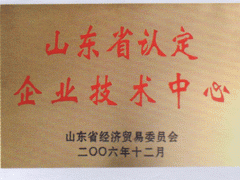 山东省认定
企业技术中心
山东省经济贸易委员会
二〇〇六年十二月